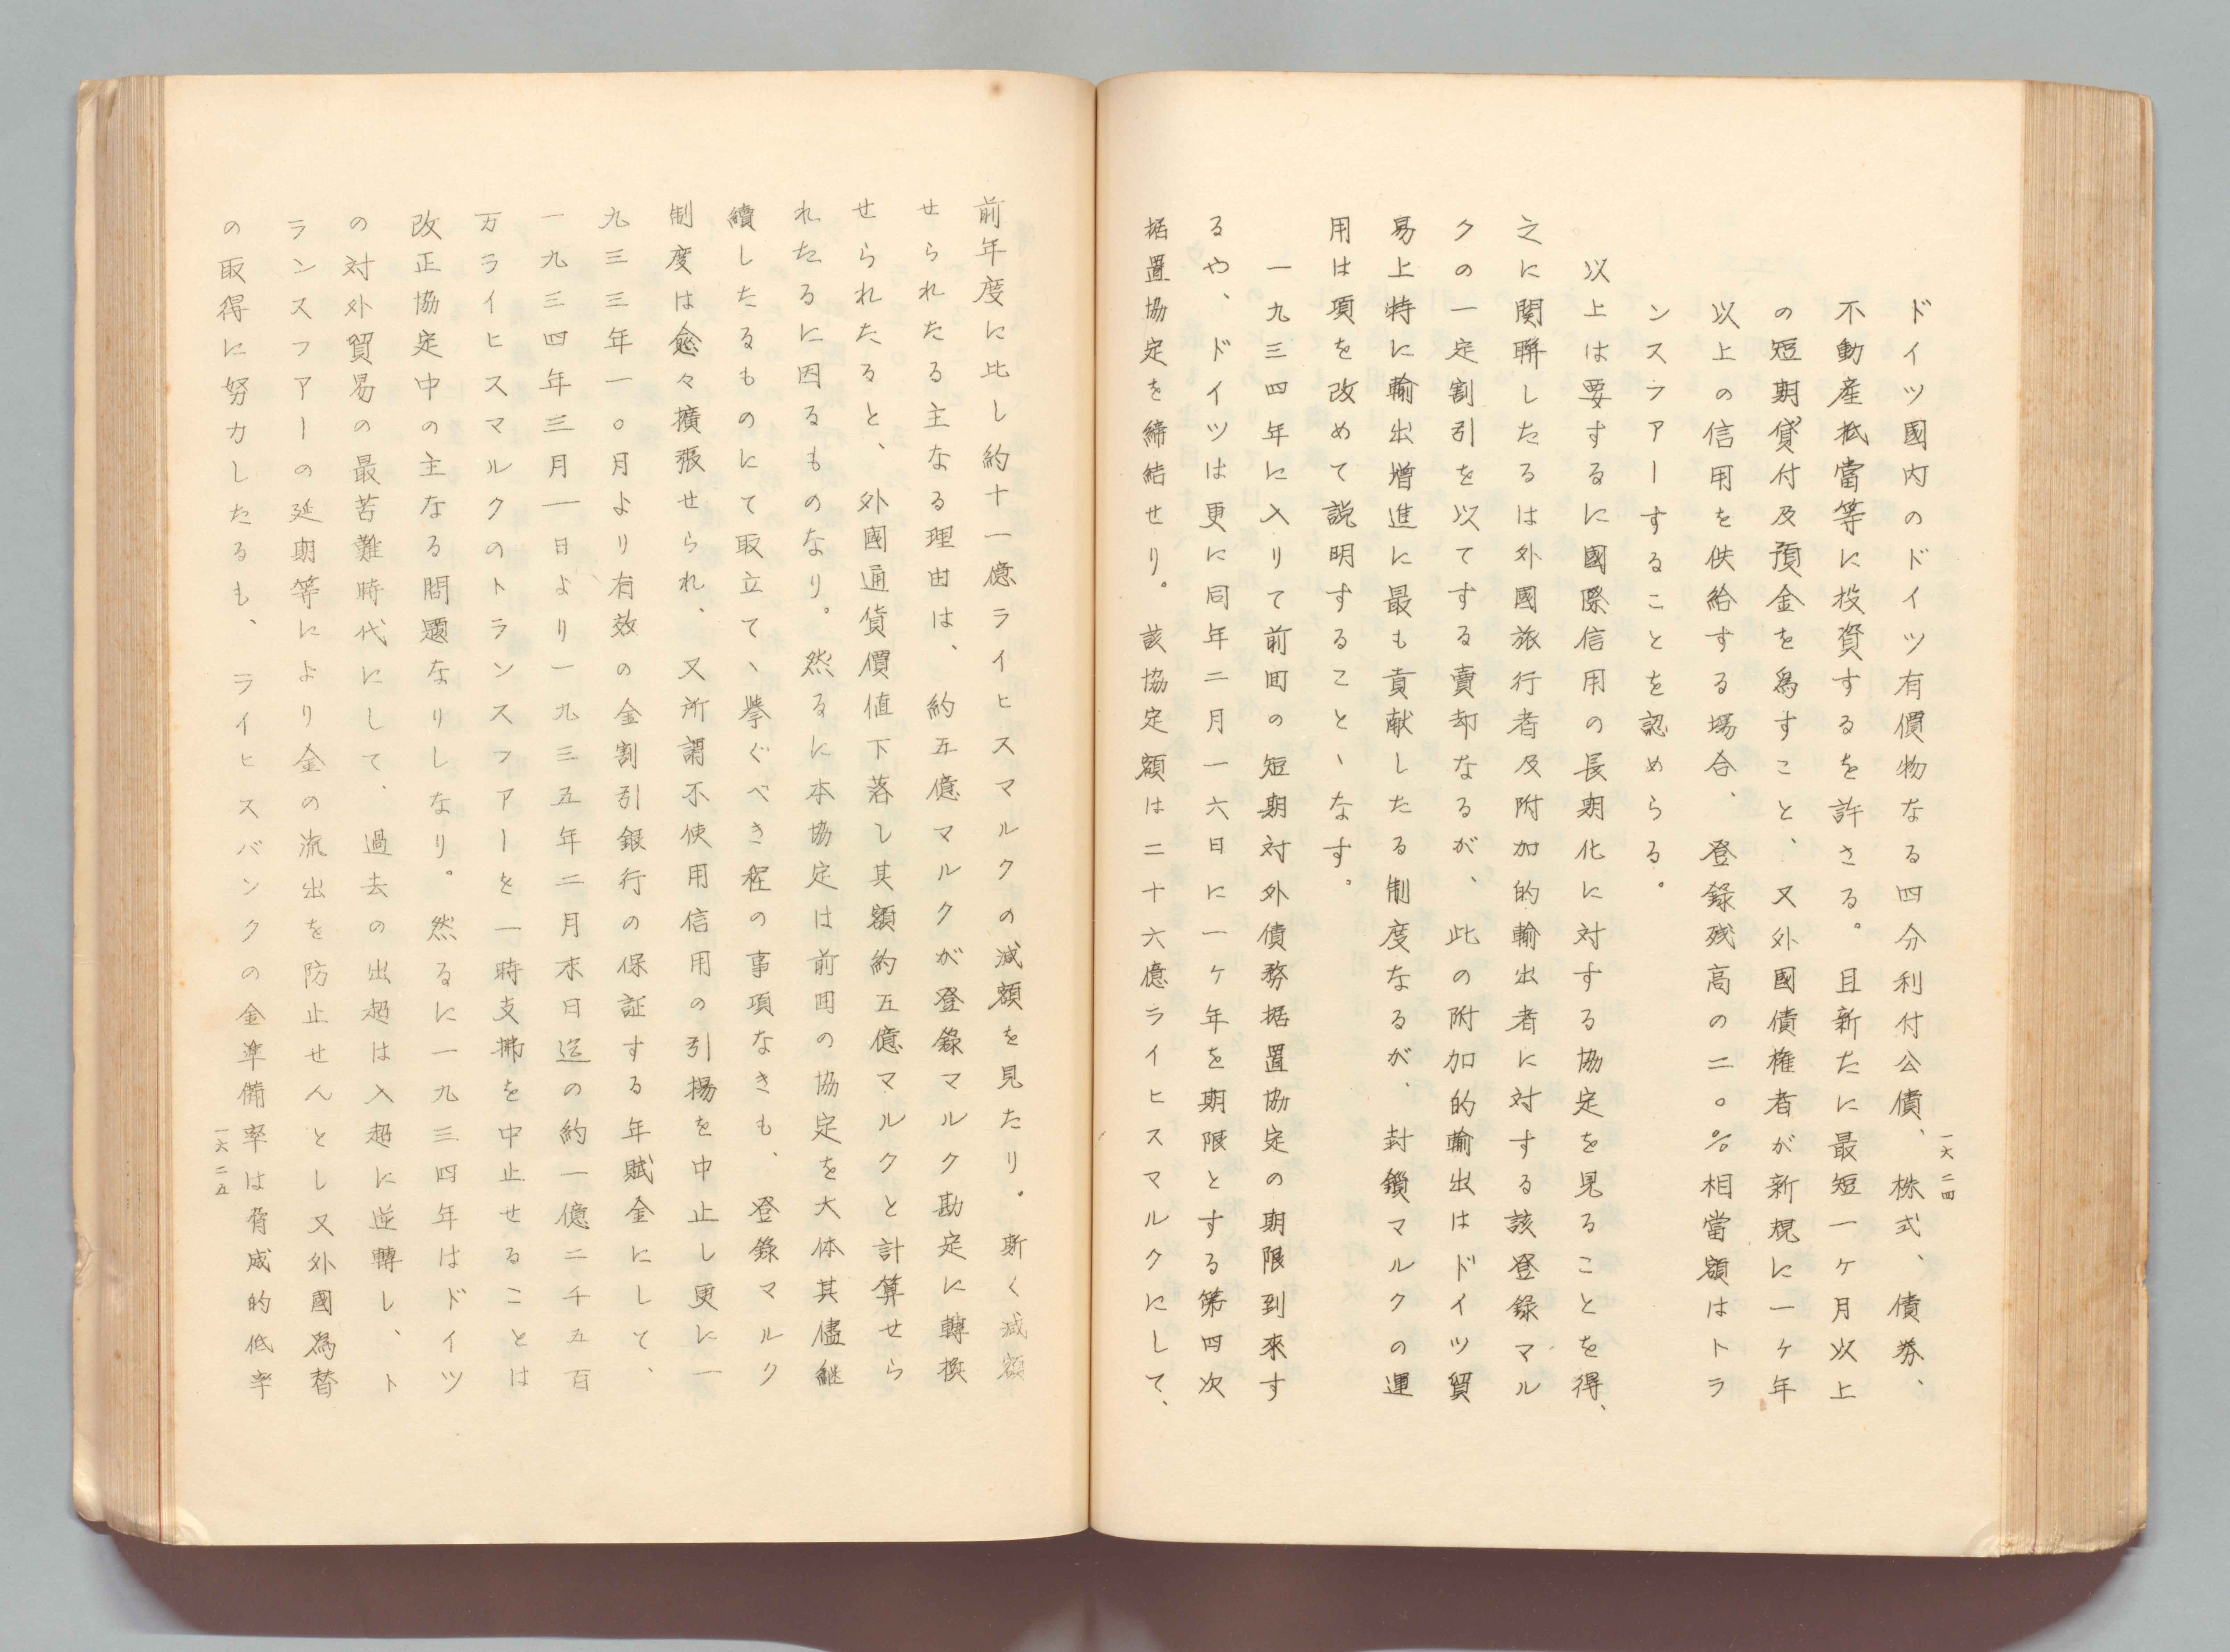 一六二四
ドイツ國内のドイツ有價物なる四分利付公債、株式、債券、
不動産抵當等に投資するを許さる。且新たに最短一ケ月以上
の短期貸付及預金を爲すこと、又外國債権者が新規に一ヶ年
以上の信用を供給する場合、登録残高の二〇％相當額はトラ
ンスフアーすることを認めらる。
以上は要するに國際信用の長期化に対する協定を見ることを得、
之に関聯したるは外國旅行者及附加的輸出者に対する該登録マル
クの一定割引を以てする賣却なるが、此の附加的輸出はドイツ貿
易上特に輸出増進に最も貢献したる制度なるが、封鎖マルクの運
用は項を改めて説明すること、なす。
一九三四年に入りて前囬の短期対外債務据置協定の期限到來す
るや、ドイツは更に同年二月一六日に一ヶ年を期限とする第四次
据置協定を締結せり。該協定額は二十六億ライヒスマルクにして、
前年度に比し約十一億ライヒスマルクの減額を見たり。斯く減額
せられたる主なる理由は、約五億マルクが登錄マルク勘定に轉換
せられたると、外國通貨價値下落し其額約五億マルクと計算せら
れたるに因るものなり。然るに本協定は前囬の協定を大体其儘継
續したるものにて取立て、擧ぐべき程の事項なきも、登錄マルク
制度は愈々擴張せられ、又所謂不使用信用の引揚を中止し更に一
九三三年一〇月より有效の金割引銀行の保証する年賦金にして、
一九三四年三月一日より一九三五年二月末日迄の約一億二千五百
万ライヒスマルクのトランスフアーを一時支拂を中止せることは
改正協定中の主なる問題なりしなり。然るに一九三四年はドイツ
の対外貿易の最苦難時代にして、過去の出超は入超に逆轉し、ト
ランスフアーの延期等により金の流出を防止せんとし又外國爲替
の取得に努力したるも、ライヒスバンクの金準備率は脅威的低率
一六二五